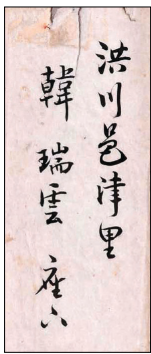 洪川邑津里
韓瑞雲 座下